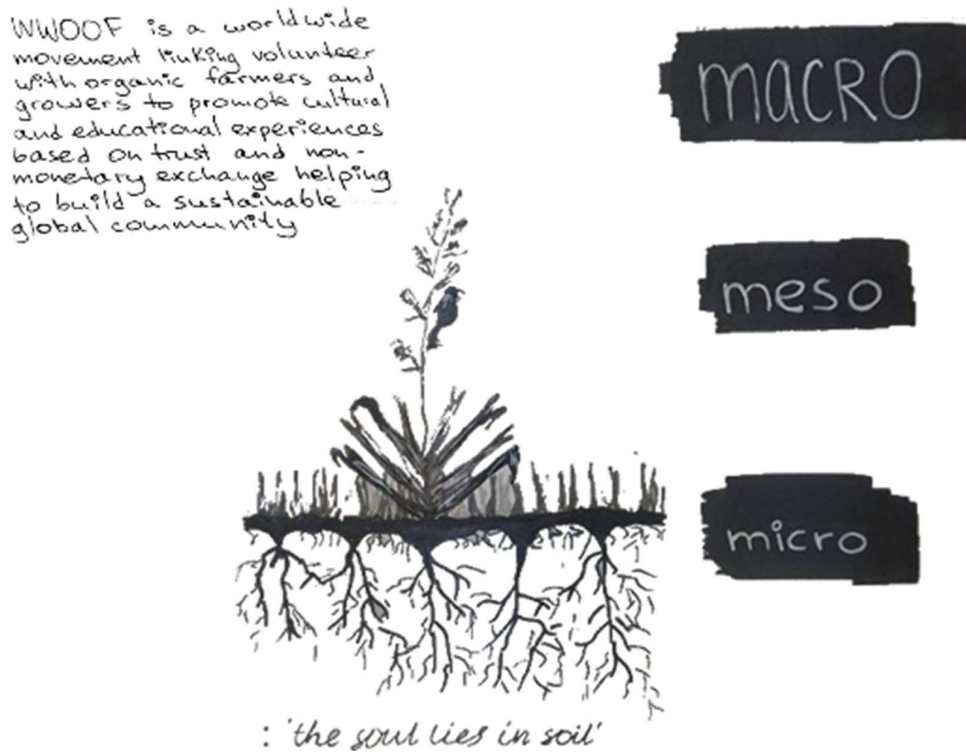 WWOOF is a worldwide
movement linking volunteer
with organic farmers and
growers to promote cultural
and educational experiences
based on trust and non-
monetary exchange helping
to build a sustainable
global community
MACRO
meso
micro
: 'the soul lies in soil'